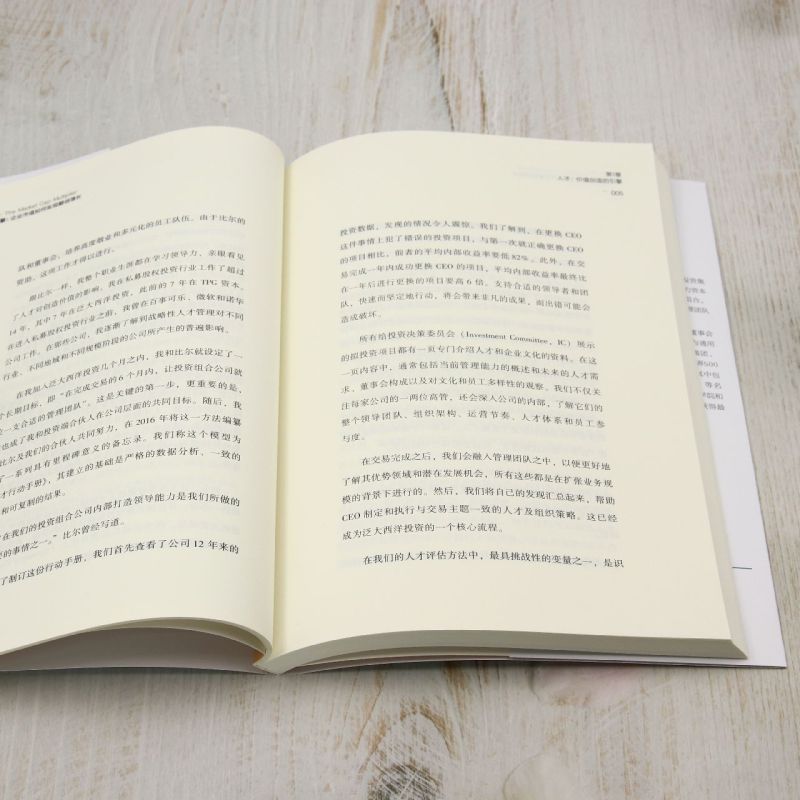 The Market Cap Multiplier
队和董事会，培养高度敬业和多元化的员工队伍。由于比尔的
资助，这项工作才得以进行。
跟比尔一样，我整个职业生涯都在学习领导力，亲眼看见
了人才对创造价值的影响。我在私募股权投资行业工作了超过
14 年，其中 7 年在泛大西洋投资，此前的 7 年在 TPG 资本。
在进入私募股权投资行业之前，我曾在百事可乐、微软和诺华
公司工作。在那些公司，我逐渐了解到战略性人才管理对不同
行业、不同地域和不同规模阶段的公司所产生的普遍影响。
在我加入泛大西洋投资几个月之内，我和比尔就设定了一
个长期目标，即“在完成交易的 6 个月内，让投资组合公司就
位一支合适的管理团队”。这是关键的第一步，更重要的是，
也成了我和投资端合伙人在公司层面的共同目标。随后，我
比尔及我们的合伙人共同努力，在 2016 年将这一方法编纂
了一系列具有里程碑意义的备忘录。我们称这个模型为
才行动手册），其建立的基础是严格的数据分析、一致的
和可复制的结果。
在我们的投资组合公司内部打造领导能力是我们所做的
要的事情之一。”比尔曾经写道。
了制订这份行动手册，我们首先查看了公司 12 年来的
第1章
人才：价值创造的引擎
005
投资数据，发现的情况令人震惊。我们了解到，在更换 CEO
这件事情上犯了错误的投资项目，与第一次就正确更换 CEO
的项目相比，前者的平均内部收益率要低 82%。此外，在交
易完成一年内成功更换 CEO 的项目，平均内部收益率最终比
在一年后进行更换的项目要高 6 倍。支持合适的领导者和团
队，快速而坚定地行动，将会带来非凡的成果，而出错可能会
造成破坏。
所有给投资决策委员会（Investment Committee，IC）展示
的拟投资项目都有一页专门介绍人才和企业文化的资料。在这
一页内容中，通常包括当前管理能力的概述和未来的人才需
求、董事会构成以及对文化和员工多样性的观察。我们不仅关
注每家公司的一两位高管，还会深入公司的内部，了解它们的
整个领导团队、组织架构、运营节奏、人才体系和员工参
与度。
在交易完成之后，我们会融入管理团队之中，以便更好地
了解其优势领域和潜在发展机会，所有这些都是在扩张业务规
模的背景下进行的。然后，我们将自己的发现汇总起来，帮助
CEO 制定和执行与交易主题一致的人才及组织策略。这已经
成为泛大西洋投资的一个核心流程。
在我们的人才评估方法中，最具挑战性的变量之一，是识